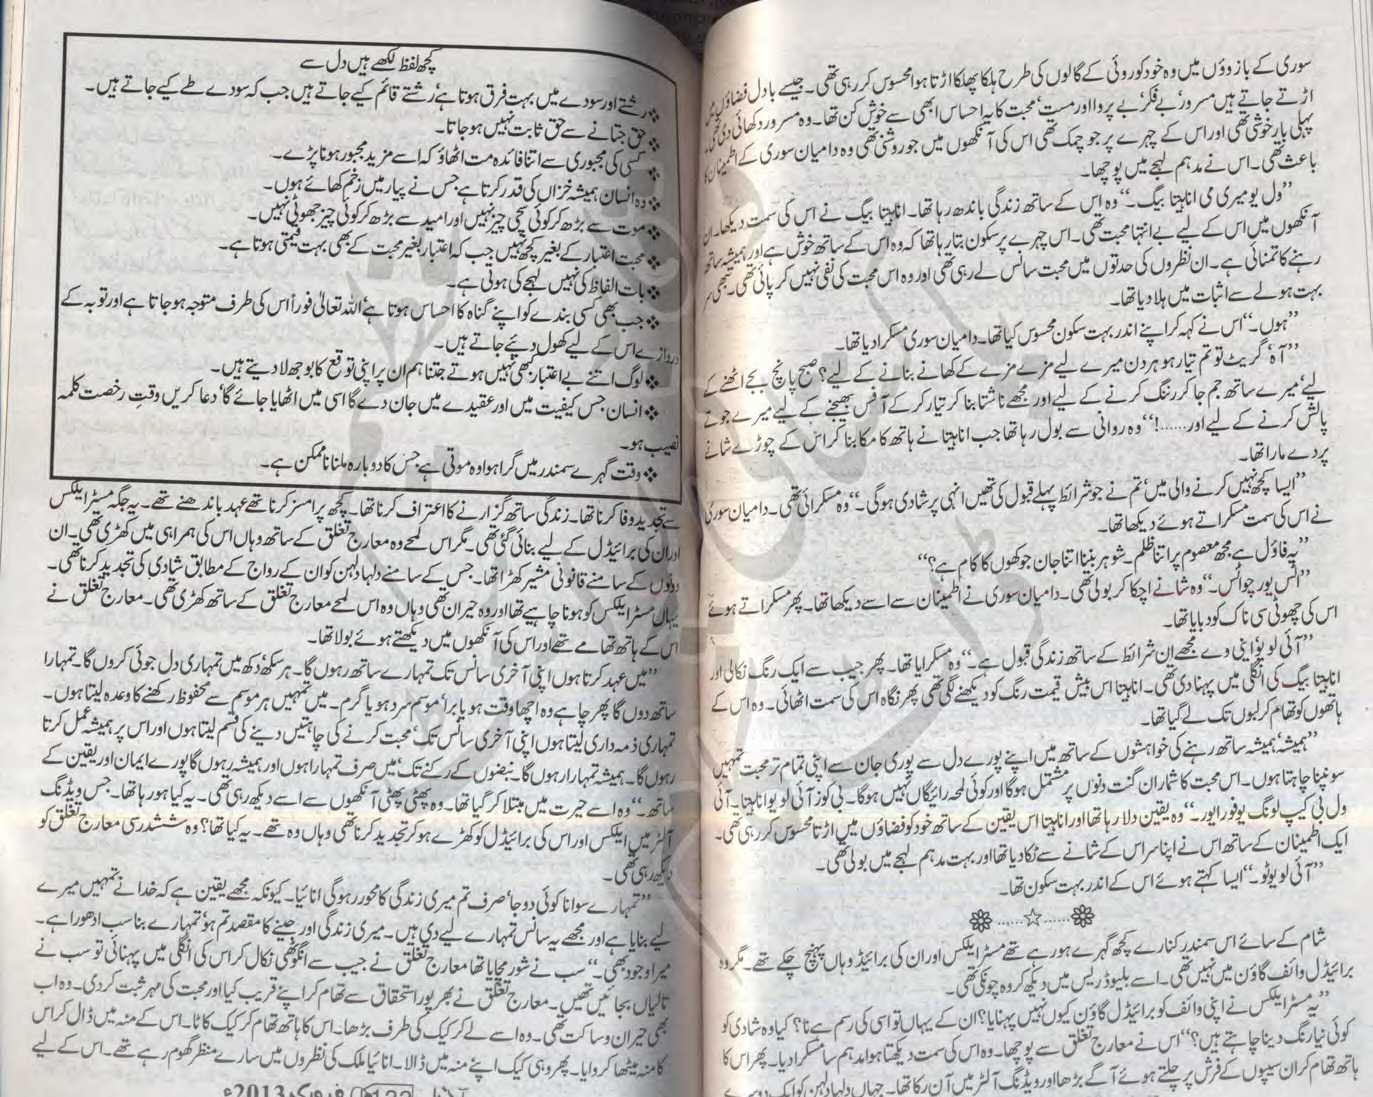 سوری کے بازوؤں میں وہ خود کو روئی کے گالوں کی طرح ہلکا پھلکا اڑتا ہوا محسوس کر رہی تھی۔ جیسے بادل فضاؤں میں
اڑتے جاتے ہیں مسرور‘ بے فکر‘ بے پروا اور مست‘ محبت کا یہ احساس ابھی سے خوش کن تھا۔ وہ مسرور دکھائی دی تھی۔
پہلی بار خوشی تھی اور اس کے چہرے پر جو چمک تھی اس کی آنکھوں میں جو روشنی تھی وہ دامیان سوری کے اطمینان کا
باعث تھی۔ اس نے مدہم لہجے میں پوچھا۔
”ول یو میری می اناہیتا بیگ۔“ وہ اس کے ساتھ زندگی باندھ رہا تھا۔ اناہیتا بیگ نے اس کی سمت دیکھا۔ ان
آنکھوں میں اس کے لیے بے انتہا محبت تھی۔ اس چہرے پر سکون بتا رہا تھا کہ وہ اس کے ساتھ خوش ہے اور ہمیشہ ساتھ
رہنے کا تمنائی ہے۔ ان نظروں کی حدتوں میں محبت سانس لے رہی تھی اور وہ اس محبت کی نفی نہیں کر پائی تھی۔ تبھی سر
بہت ہولے سے اثبات میں ہلا دیا تھا۔
”ہوں۔“ اس نے کہہ کر اپنے اندر بہت سکون محسوس کیا تھا۔ دامیان سوری مسکرا دیا تھا۔
”آہ‘ گریٹ تو تم تیار ہو ہر دن میرے لیے مزے مزے کے کھانے بنانے کے لیے؟ صبح پانچ بجے اٹھنے کے
لیے‘ میرے ساتھ جم جا کر رننگ کرنے کے لیے اور مجھے ناشتا بنا کر تیار کر کے آفس بھیجنے کے لیے میرے جوتے
پالش کرنے کے لیے اور......!“ وہ روانی سے بول رہا تھا جب اناہیتا نے ہاتھ کا مکا بنا کر اس کے چوڑے شانے
پر دے مارا تھا۔
”ایسا کچھ نہیں کرنے والی میں‘ تم نے جو شرائط پہلے قبول کی تھیں انہی پر شادی ہوگی۔“ وہ مسکرائی تھی۔ دامیان سوری
نے اس کی سمت مسکراتے ہوئے دیکھا تھا۔
”یہ فاؤل ہے مجھ معصوم پر اتنا ظلم۔ شوہر بننا اتنا جان جوکھوں کا کام ہے؟“
”اٹس یور چوائس۔“ وہ شانے اچکا کر بولی تھی۔ دامیان سوری نے اطمینان سے اسے دیکھا تھا۔ پھر مسکراتے ہوئے
اس کی چھوٹی سی ناک کو دبایا تھا۔
”آئی لو یو‘ اینی وے مجھے ان شرائط کے ساتھ زندگی قبول ہے۔“ وہ مسکرایا تھا۔ پھر جیب سے ایک رنگ نکالی اور
اناہیتا بیگ کی انگلی میں پہنا دی تھی۔ اناہیتا اس بیش قیمت رنگ کو دیکھنے لگی تھی پھر نگاہ اس کی سمت اٹھائی۔ وہ اس کے
ہاتھوں کو تھام کر لبوں تک لے گیا تھا۔
”ہمیشہ‘ ہمیشہ ساتھ رہنے کی خواہشوں کے ساتھ میں اپنے پورے دل سے پوری جان سے اپنی تمام تر محبت تمہیں
سونپنا چاہتا ہوں۔ اس محبت کا شمار ان گنت دنوں پر مشتمل ہوگا اور کوئی لمحہ رائیگاں نہیں ہوگا۔ بی کوز آئی لو یو اناہیتا۔ آئی
ول بی کیپ لونگ یو فور ایور۔“ وہ یقین دلا رہا تھا اور اناہیتا اس یقین کے ساتھ خود کو فضاؤں میں اڑتا محسوس کر رہی تھی۔
ایک اطمینان کے ساتھ اس نے اپنا سر اس کے شانے سے ٹکا دیا تھا اور بہت مدہم لہجے میں بولی تھی۔
”آئی لو یو ٹو۔“ ایسا کہتے ہوئے اس کے اندر بہت سکون تھا۔
❁......☆......❁
شام کے سائے اس سمندر کنارے کچھ گہرے ہو رہے تھے مسٹر ایلکس اور ان کی برائیڈ وہاں پہنچ چکے تھے۔ مگر وہ
برائیڈل وائف گاؤن میں نہیں تھی۔ اسے بلیو ڈریس میں دیکھ کر وہ چونکی تھی۔
”یہ مسٹر ایلکس نے اپنی وائف کو برائیڈل گاؤن کیوں نہیں پہنایا؟ ان کے یہاں تو اسی کی رسم ہے نا؟ کیا وہ شادی کو
کوئی نیا رنگ دینا چاہتے ہیں؟“ اس نے معارج تغلق سے پوچھا۔ وہ اس کی سمت دیکھتا ہوا مدہم سا مسکرا دیا۔ پھر اس کا
ہاتھ تھام کر ان سیپوں کے فرش پر چلتے ہوئے آگے بڑھا اور ویڈنگ آلٹر میں آن رکا تھا۔ جہاں دلہا دلہن کو ایک دوسرے
کچھ لفظ لکھے ہیں دل سے
❖ رشتے اور سودے میں بہت فرق ہوتا ہے‘ رشتے قائم کیے جاتے ہیں جب کہ سودے طے کیے جاتے ہیں۔
❖ حق جتانے سے حق ثابت نہیں ہو جاتا۔
❖ کسی کی مجبوری سے اتنا فائدہ مت اٹھاؤ کہ اسے مزید مجبور ہونا پڑے۔
❖ وہ انسان ہمیشہ خزاں کی قدر کرتا ہے جس نے پیار میں زخم کھائے ہوں۔
❖ موت سے بڑھ کر کوئی سچی چیز نہیں اور امید سے بڑھ کر کوئی چیز جھوٹی نہیں۔
❖ محبت اعتبار کے بغیر کچھ نہیں جب کہ اعتبار بغیر محبت کے بھی بہت قیمتی ہوتا ہے۔
❖ بات الفاظ کی نہیں لہجے کی ہوتی ہے۔
❖ جب بھی کسی بندے کو اپنے گناہ کا احساس ہوتا ہے‘ اللہ تعالیٰ فوراً اس کی طرف متوجہ ہو جاتا ہے اور توبہ کے
دروازے اس کے لیے کھول دیئے جاتے ہیں۔
❖ لوگ اتنے بے اعتبار بھی نہیں ہوتے جتنا ہم ان پر اپنی توقع کا بوجھ لا دیتے ہیں۔
❖ انسان جس کیفیت میں اور عقیدے میں جان دے گا اسی میں اٹھایا جائے گا‘ دعا کریں وقت رخصت کلمہ
نصیب ہو۔
❖ وقت گہرے سمندر میں گرا ہوا وہ موتی ہے جس کا دوبارہ ملنا ناممکن ہے۔
سے تجدید وفا کرنا تھا۔ زندگی ساتھ گزارنے کا اعتراف کرنا تھا۔ کچھ پرامسز کرنا تھے عہد باندھنے تھے۔ یہ جگہ مسٹر ایلکس
اور ان کی برائیڈل کے لیے بنائی گئی تھی۔ مگر اس لمحے وہ معارج تغلق کے ساتھ وہاں اس کی ہمراہی میں کھڑی تھی۔ ان
دونوں کے سامنے قانونی مشیر کھڑا تھا۔ جس کے سامنے دلہا دلہن کو ان کے رواج کے مطابق شادی کی تجدید کرنا تھی۔
یہاں مسٹر ایلکس کو ہونا چاہیے تھا اور وہ حیران تھی وہاں وہ اس لمحے معارج تغلق کے ساتھ کھڑی تھی۔ معارج تغلق نے
اس کے ہاتھ تھامے تھے اور اس کی آنکھوں میں دیکھتے ہوئے بولا تھا۔
”میں عہد کرتا ہوں اپنی آخری سانس تک تمہارے ساتھ رہوں گا۔ ہر سکھ‘ دکھ میں تمہاری دل جوئی کروں گا۔ تمہارا
ساتھ دوں گا پھر چاہے وہ اچھا وقت ہو یا برا‘ موسم سرد ہو یا گرم۔ میں تمہیں ہر موسم سے محفوظ رکھنے کا وعدہ لیتا ہوں۔
تمہاری ذمہ داری لیتا ہوں اپنی آخری سانس تک‘ محبت کرنے کی چاہتیں دینے کی قسم لیتا ہوں اور اس پر ہمیشہ عمل کرتا
رہوں گا۔ ہمیشہ تمہارا رہوں گا۔ نبضوں کے رکنے تک‘ میں صرف تمہارا ہوں اور ہمیشہ رہوں گا پورے ایمان اور یقین کے
ساتھ۔“ وہ اسے حیرت میں مبتلا کر گیا تھا۔ وہ پھٹی پھٹی آنکھوں سے اسے دیکھ رہی تھی۔ یہ کیا ہو رہا تھا۔ جس ویڈنگ
آلٹر میں ایلکس اور اس کی برائیڈل کو کھڑے ہو کر تجدید کرنا تھی وہاں وہ تھے۔ یہ کیا تھا؟ وہ ششدر سی معارج تغلق کو
دیکھ رہی تھی۔
”تمہارے سوا نا کوئی دوجا‘ صرف تم میری زندگی کا محور رہو گی انائیا۔ کیونکہ مجھے یقین ہے کہ خدا نے تمہیں میرے
لیے بنایا ہے اور مجھے یہ سانس تمہارے لیے دی ہیں۔ میری زندگی اور جینے کا مقصد تم ہو‘ تمہارے بنا سب ادھورا ہے۔
میرا وجود بھی۔“ سب نے شور مچایا تھا معارج تغلق نے جیب سے انگوٹھی نکال کر اس کی انگلی میں پہنائی تو سب نے
تالیاں بجائیں تھیں۔ معارج تغلق نے بھرپور استحقاق سے تھام کر اپنے قریب کیا اور محبت کی مہر ثبت کر دی۔ وہ اب
بھی حیران و ساکت تھی۔ وہ اسے لے کر کیک کی طرف بڑھا۔ اس کا ہاتھ تھام کر کیک کاٹا۔ اس کے منہ میں ڈال کر اس
کا منہ میٹھا کروایا۔ پھر وہی کیک اپنے منہ میں ڈالا۔ انائیا ملک کی نظروں میں سارے منظر گھوم رہے تھے۔ اس کے لیے
فروری 2013ء